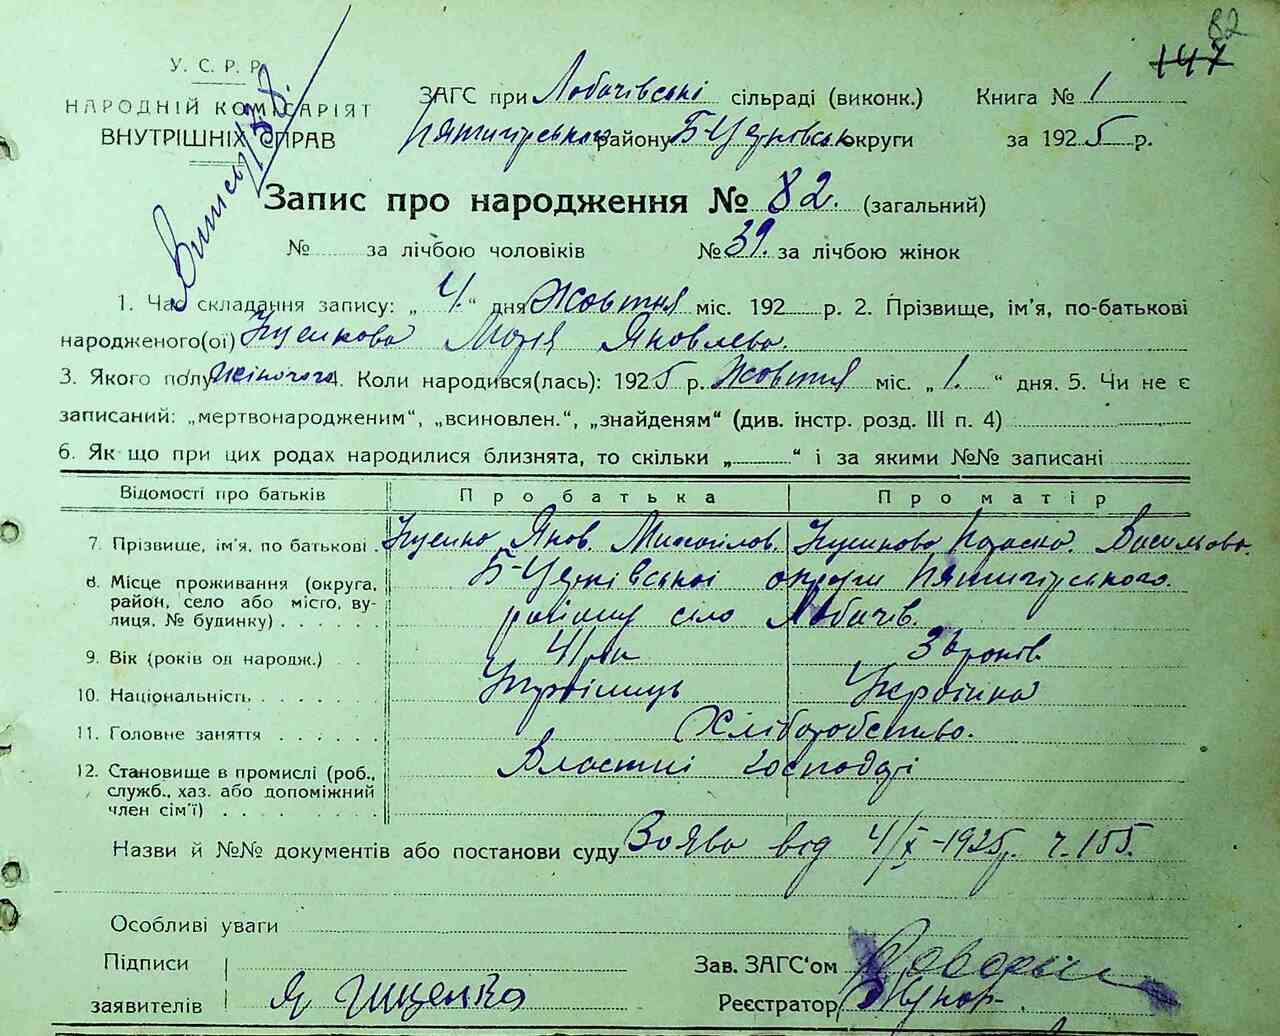 82
147
У. С. Р. Р.
НАРОДНІЙ КОМІСАРІЯТ
ВНУТРІШНІХ СПРАВ
ЗАГС при Лобачівські сільраді (виконк.) Книга № 1
Пятигірського району Б-Церковськ округи за 1925 р.
Запис про народження № 82. (загальний)
№ за лічбою чоловіків № 39. за лічбою жінок
1. Час складання запису: „ 4. “ дня Жовтня міс. 192 р. 2. Прізвище, ім'я, по-батькові
народженого(ої) Марія Яковлева.
3. Якого полу жіночого 4. Коли народився(лась): 1925 р. Жовтня міс. „ 1. “ дня. 5. Чи не є
записаний: „мертвонародженим“, „всиновлен.“, „знайденям“ (див. інстр. розд. III п. 4)
6. Як що при цих родах народилися близнята, то скільки „ “ і за якими №№ записані
Відомості про батьків Про батька Про матір
7. Прізвище, ім'я, по батькові Яков. Михайлов. Параска. Васильова.
8. Місце проживання (округа, Б-Церківської округи Пятигірського.
район, село або місто, ву-
лиця, № будинку) району село Лобачів.
9. Вік (років од народж.) 41 рік 36 років
10. Національність Українець Українка
11. Головне заняття Хліборобство.
12. Становище в промислі (роб., Властні господарі
служб., хаз. або допоміжний
член сім'ї)
Назви й №№ документів або постанови суду Заява від 4/X-1925р. ч. 155.
Особливі уваги
Підписи Зав. ЗАГС'ом
заявителів Я Реєстратор